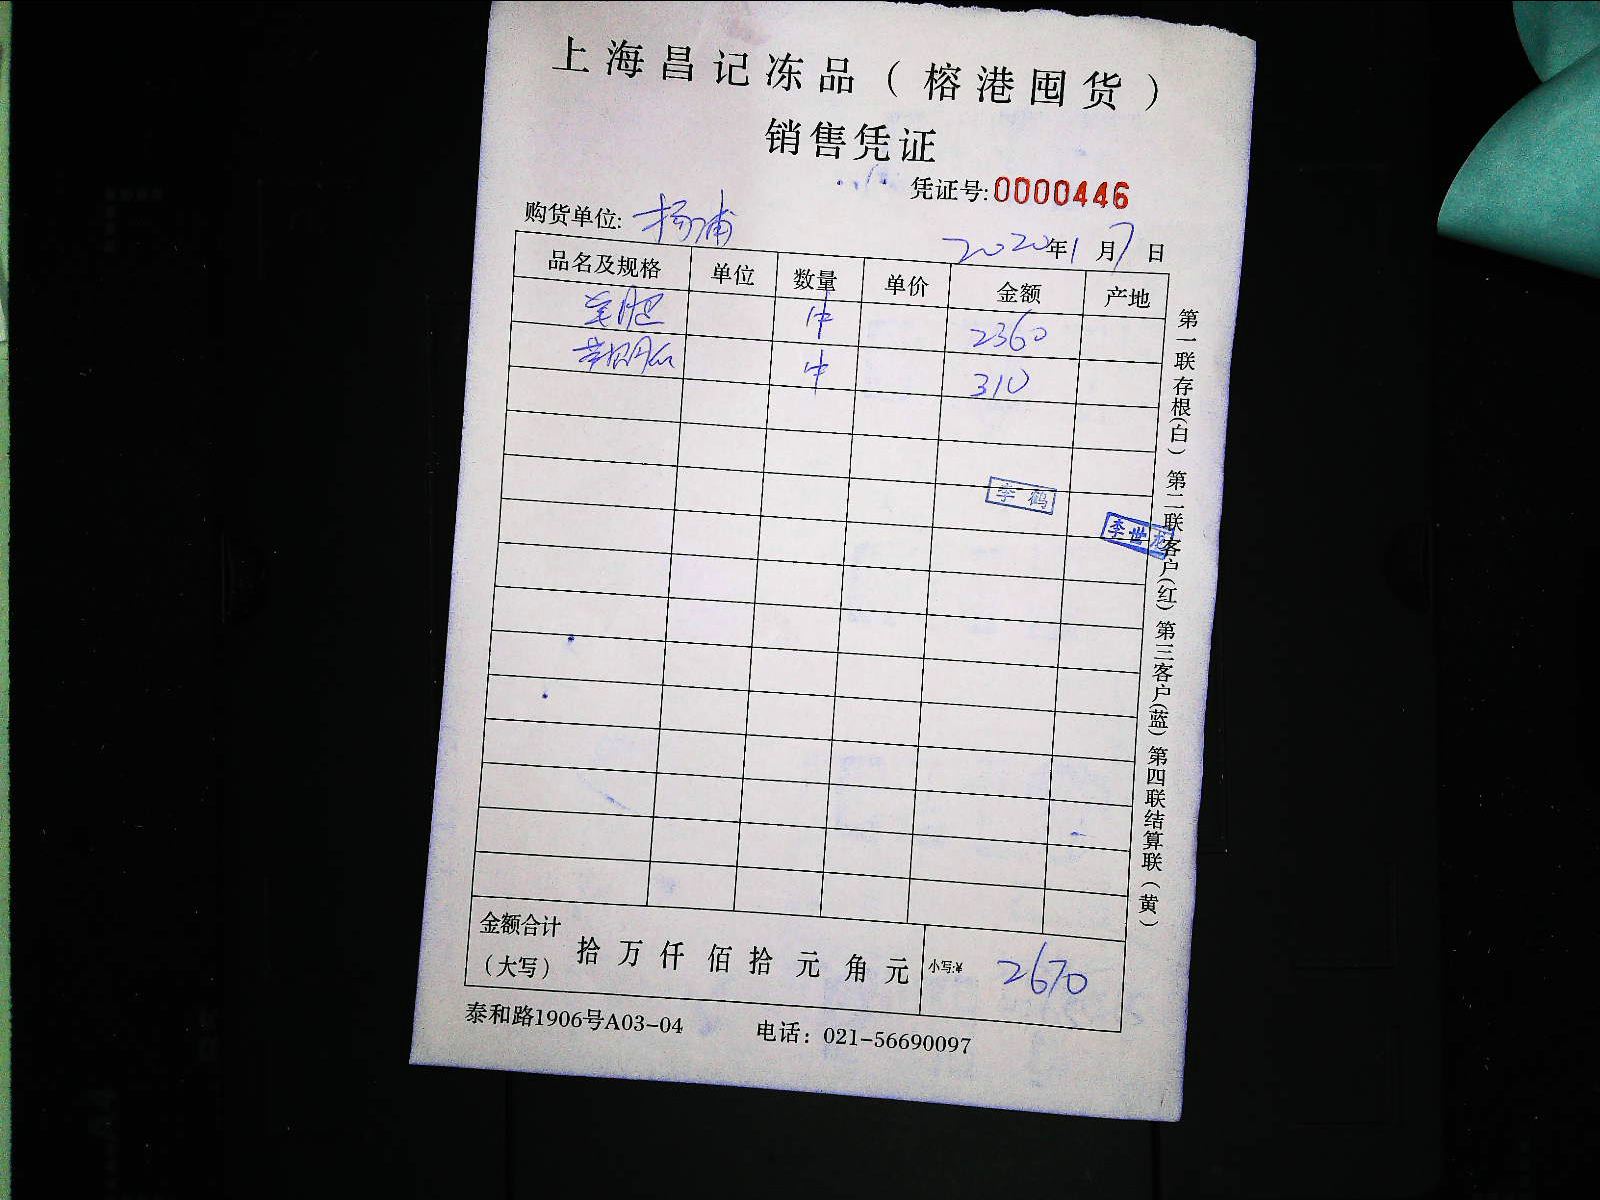 上海昌记冻品（榕港囤货）
销售凭证
凭证号:0000446
购货单位: 杨浦
2020年1月7日
品名及规格 单位 数量 单价 金额 产地
2360
310
李鹤
李世龙
金额合计（大写） 拾万仟佰拾元角元 小写:¥ 2670
泰和路1906号A03-04 电话：021-56690097
第一联存根(白) 第二联客户(红) 第三客户(蓝) 第四联结算联(黄)